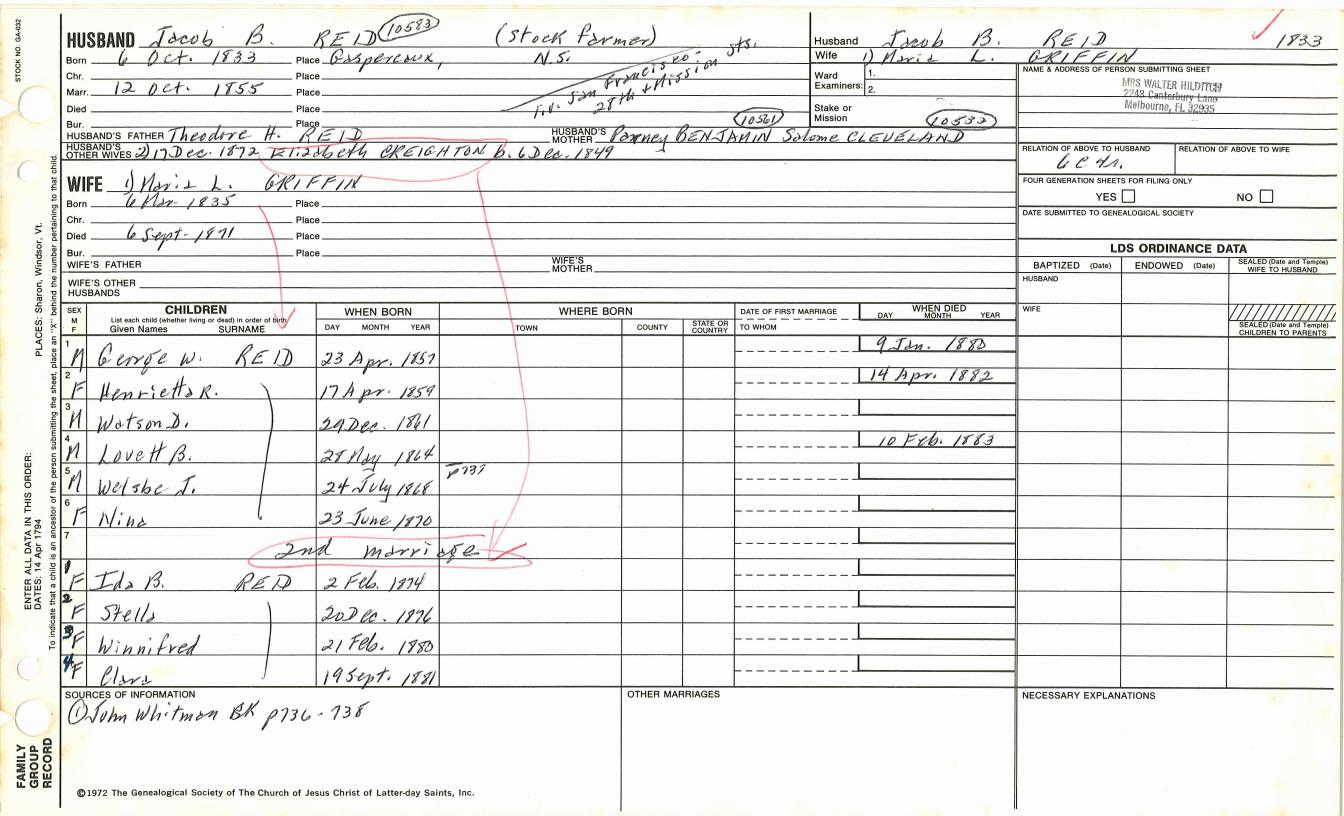 STOCK NO. GA-032
HUSBAND Jacob B. REID 10583 (Stock farmer)
Born 6 Oct. 1833 Place Gaspereaux, N.S.
Chr. Place
Marr. 12 Oct. 1855 Place
Died Place
Bur. Place
F.V. San Francisco
28th & Mission Sts.
10561
HUSBAND'S FATHER Theodore H. REID HUSBAND'S MOTHER BENJAMIN Salome CLEVELAND
HUSBAND'S OTHER WIVES 2) 17 Dec. 1872 Elizabeth CREIGHTON b. 6 Dec. 1849
WIFE 1) Maria L. GRIFFIN
Born 6 Mar 1835 Place
Chr. Place
Died 6 Sept. 1871 Place
Bur. Place
WIFE'S FATHER WIFE'S MOTHER
WIFE'S OTHER HUSBANDS
Husband Jacob B. REID 1833
Wife 1) Maria L. GRIFFIN
Ward Examiners: 1.
2.
Stake or Mission 10532
NAME & ADDRESS OF PERSON SUBMITTING SHEET
MRS WALTER HILDITCH
2243 Canterbury Lane
Melbourne, FL 32935
RELATION OF ABOVE TO HUSBAND RELATION OF ABOVE TO WIFE
FOUR GENERATION SHEETS FOR FILING ONLY
YES NO
DATE SUBMITTED TO GENEALOGICAL SOCIETY
LDS ORDINANCE DATA
BAPTIZED (Date) ENDOWED (Date) SEALED (Date and Temple) WIFE TO HUSBAND
HUSBAND
WIFE
SEALED (Date and Temple) CHILDREN TO PARENTS
SEX M F CHILDREN WHEN BORN WHERE BORN DATE OF FIRST MARRIAGE WHEN DIED
List each child (whether living or dead) in order of birth
Given Names SURNAME DAY MONTH YEAR TOWN COUNTY STATE OR COUNTRY TO WHOM DAY MONTH YEAR
1 M George W. REID 23 Apr. 1857 9 Jan. 1880
2 F Henrietta R. 17 Apr. 1859 14 Apr. 1882
3 M Watson D. 29 Dec. 1861
4 M Lovett B. 28 May 1864 10 Feb. 1883
5 M J. 24 July 1868 p737
6 F Nina 23 June 1870
7 2nd marriage
1 F Ida B. REID 2 Feb. 1874
2 F Stella 20 Dec. 1876
3 F Winnifred 21 Feb. 1880
4 F Clara 19 Sept. 1881
SOURCES OF INFORMATION OTHER MARRIAGES NECESSARY EXPLANATIONS
① John Whitman BK p736-738
©1972 The Genealogical Society of The Church of Jesus Christ of Latter-day Saints, Inc.
ENTER ALL DATA IN THIS ORDER:
DATES: 14 Apr 1794 PLACES: Sharon, Windsor, Vt.
To indicate that a child is an ancestor of the person submitting the sheet, place an "X" behind the number pertaining to that child.
FAMILY GROUP RECORD